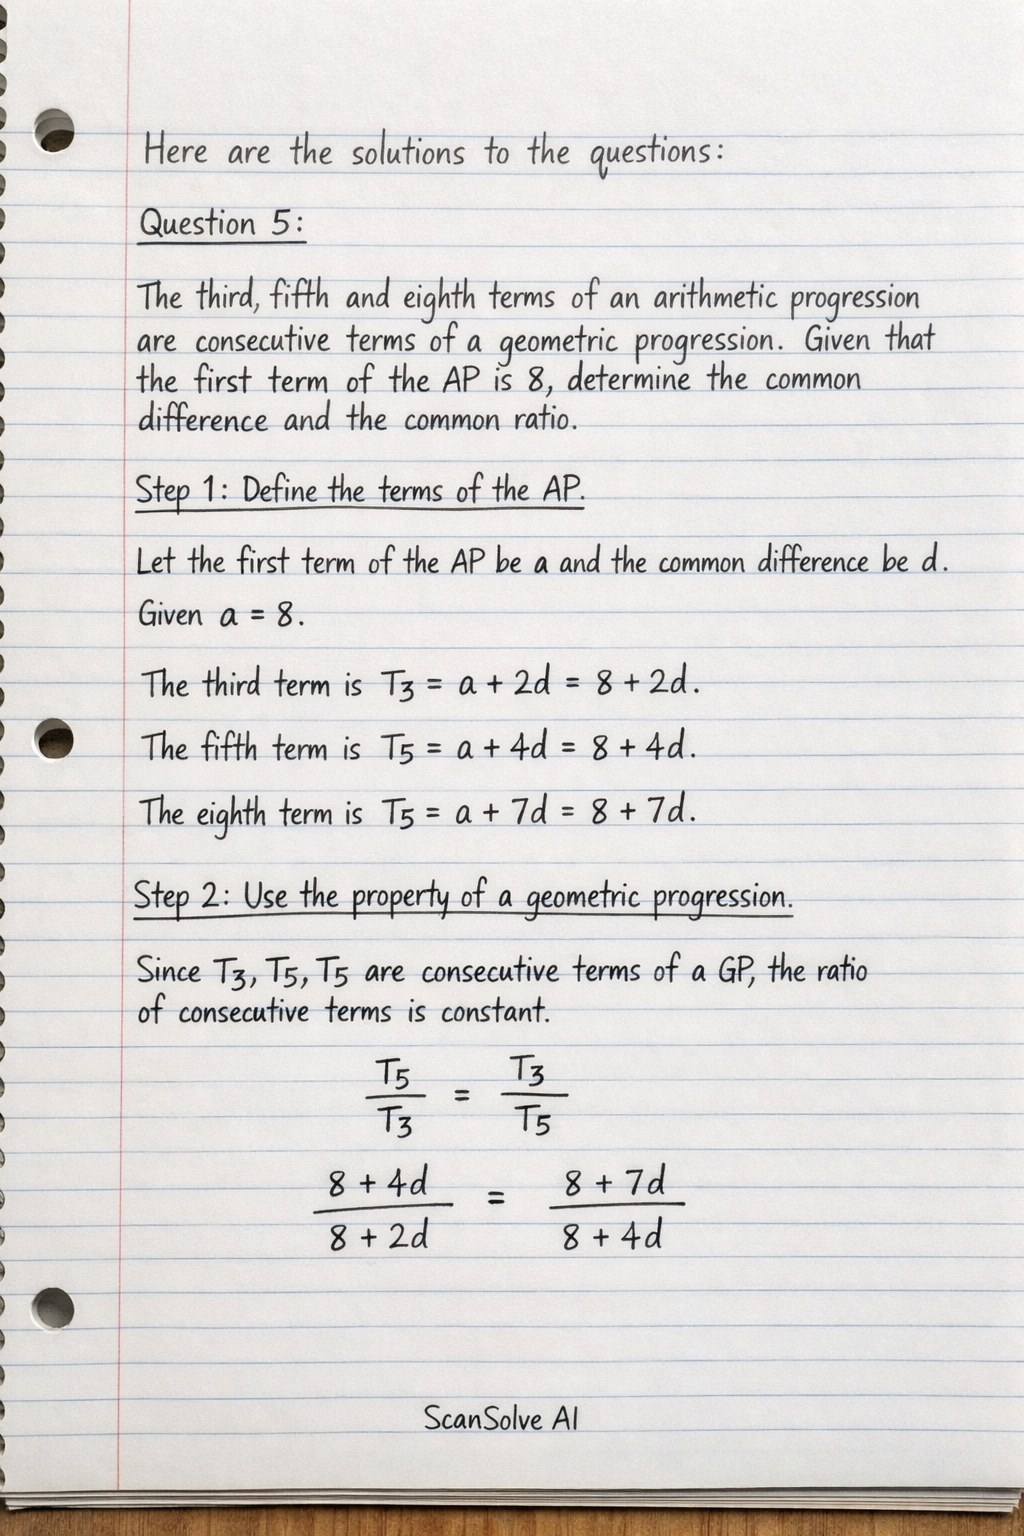 Here are the solutions to the questions:
Question 5:
The third, fifth and eighth terms of an arithmetic progression
are consecutive terms of a geometric progression. Given that
the first term of the AP is 8, determine the common
difference and the common ratio.
Step 1: Define the terms of the AP.
Let the first term of the AP be a and the common difference be d.
Given a = 8.
The third term is T₃ = a + 2d = 8 + 2d.
The fifth term is T₅ = a + 4d = 8 + 4d.
The eighth term is T₅ = a + 7d = 8 + 7d.
Step 2: Use the property of a geometric progression.
Since T₃, T₅, T₅ are consecutive terms of a GP, the ratio
of consecutive terms is constant.
T₅/T₃ = T₃/T₅
(8 + 4d)/(8 + 2d) = (8 + 7d)/(8 + 4d)
ScanSolve AI